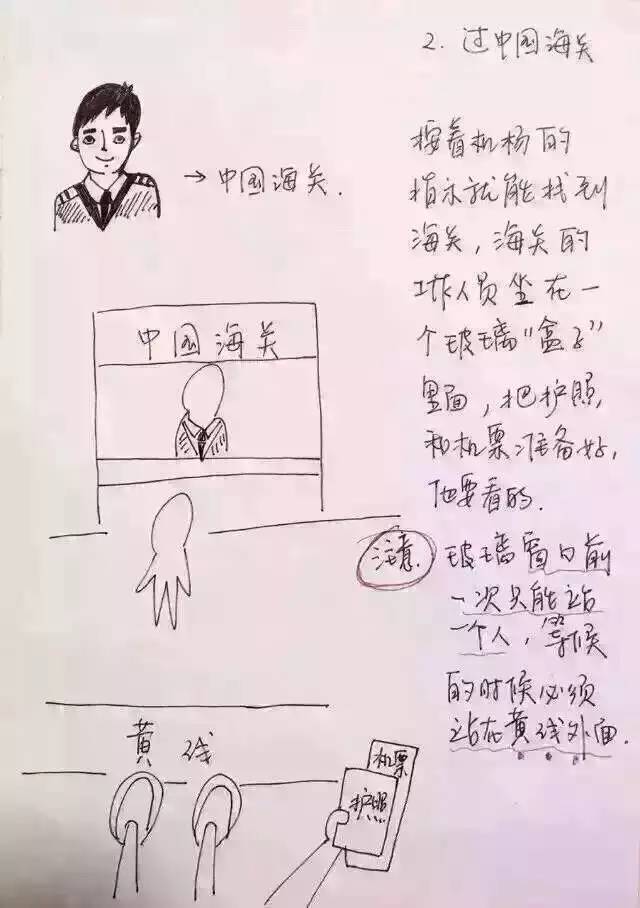 2. 过中国海关
→中国海关.
按着机场的
指示就能找到
海关，海关的
工作人员坐在一
个玻璃“盒子”
里面，把护照，
和机票准备好，
他要看的.
中国海关
注意.
玻璃窗口前
一次只能站
一个人，等候
的时候必须
站在黄线外面.
黄线
机票
护照